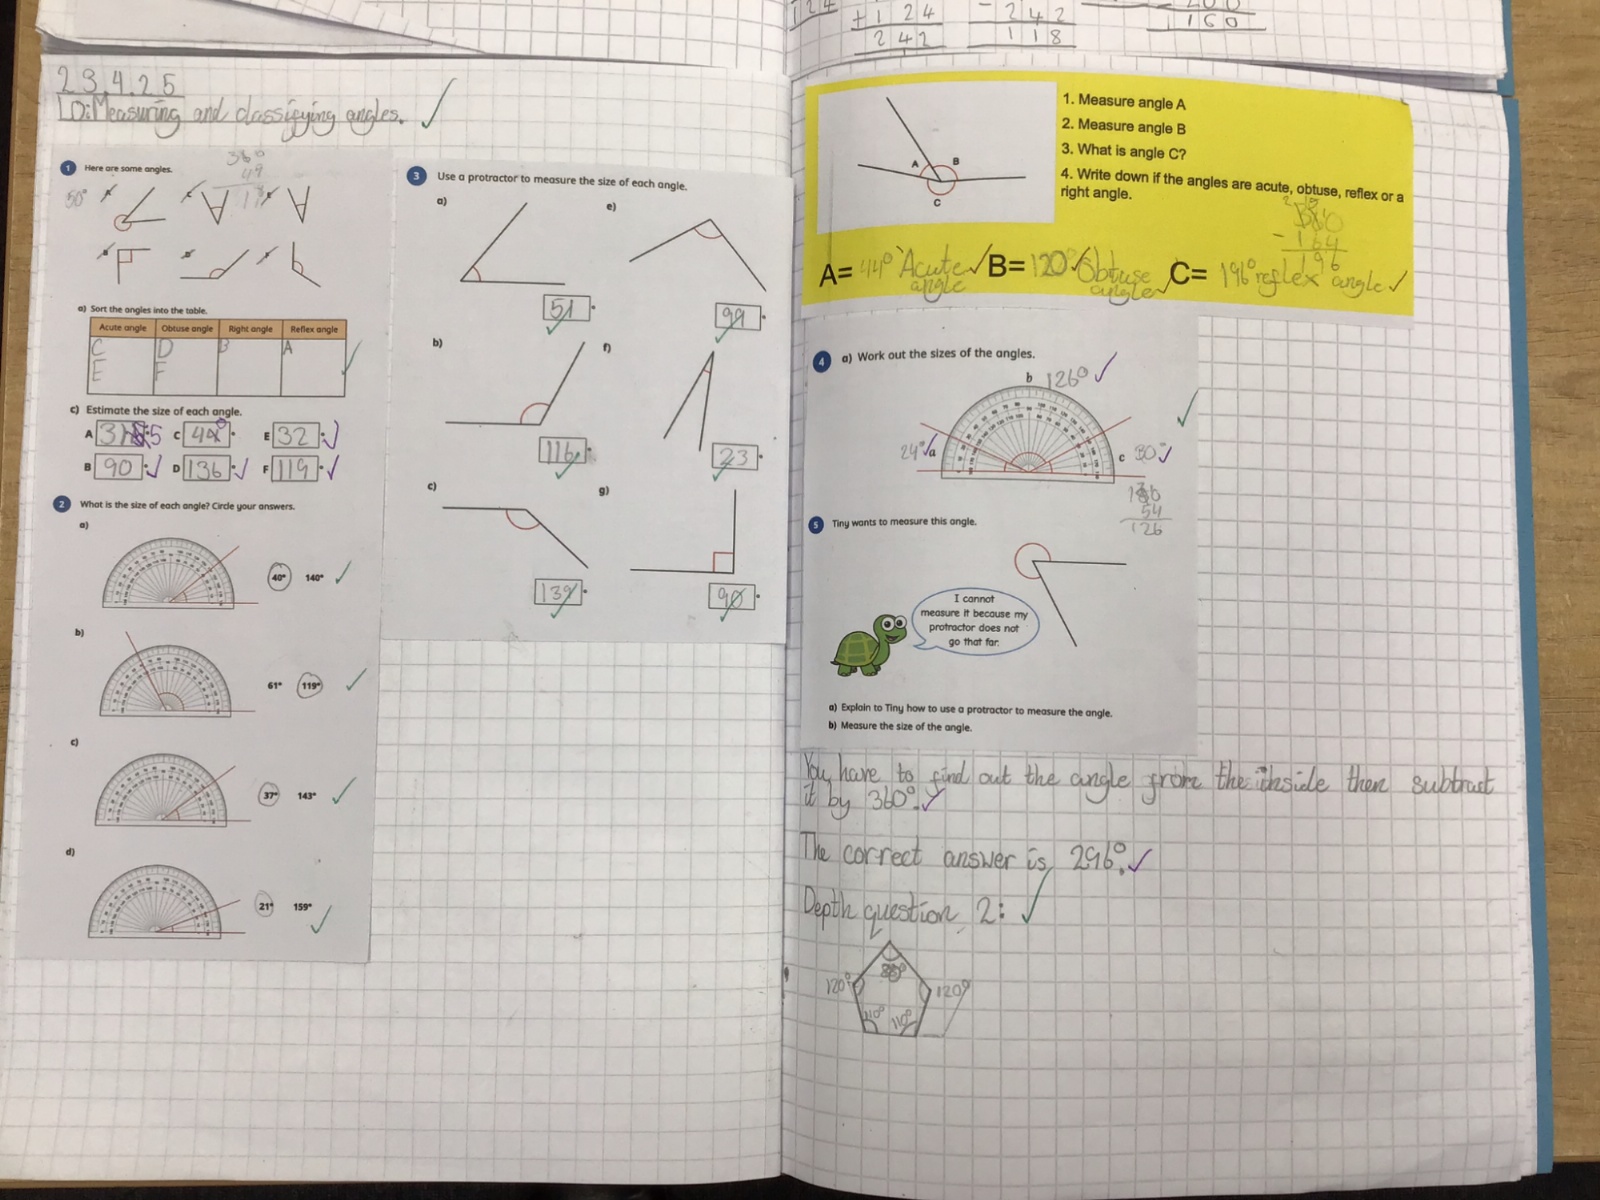 124
+124
242
-242
118
160
23.4.25
LO: Measuring and classifying angles.
1 Here are some angles.
50°
360
49
a) Sort the angles into the table.
Acute angle Obtuse angle Right angle Reflex angle
C D B A
E F
c) Estimate the size of each angle.
A C E 32°
B 90° D 136° F 119°
2 What is the size of each angle? Circle your answers.
a)
40° 140°
b)
61° 119°
c)
37° 143°
d)
21° 159°
3 Use a protractor to measure the size of each angle.
a) e)
51° 99°
b) f)
116° 23°
c) g)
139° 90°
1. Measure angle A
2. Measure angle B
3. What is angle C?
4. Write down if the angles are acute, obtuse, reflex or a
right angle.
A B
C
360
-164
196
A= 44° Acute angle B= 120° Obtuse angle C= 196° reflex angle
4 a) Work out the sizes of the angles.
b 126°
24° a c 30°
54
126
5 Tiny wants to measure this angle.
I cannot
measure it because my
protractor does not
go that far.
a) Explain to Tiny how to use a protractor to measure the angle.
b) Measure the size of the angle.
You have to find out the angle from the inside then subtract
it by 360°.
The correct answer is 296°.
Depth question 2:
80°
120° 120°
110° 110°